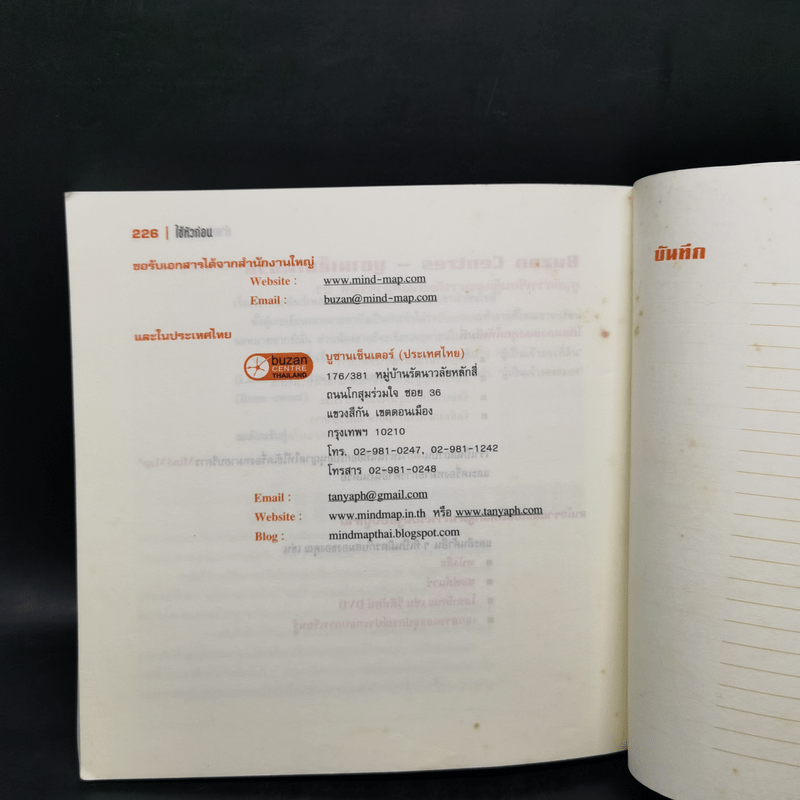 226 | ใช้หัวก่อน
ขอรับเอกสารได้จากสำนักงานใหญ่
Website : www.mind-map.com
Email : buzan@mind-map.com
และในประเทศไทย
buzan
CENTRE
THAILAND
บูซานเซ็นเตอร์ (ประเทศไทย)
176/381 หมู่บ้านรัตนาวลัยหลักสี่
ถนนโกสุมร่วมใจ ซอย 36
แขวงสีกัน เขตดอนเมือง
กรุงเทพฯ 10210
โทร. 02-981-0247, 02-981-1242
โทรสาร 02-981-0248
Email : tanyaph@gmail.com
Website : www.mindmap.in.th หรือ www.tanyaph.com
Blog : mindmapthai.blogspot.com
บันทึก